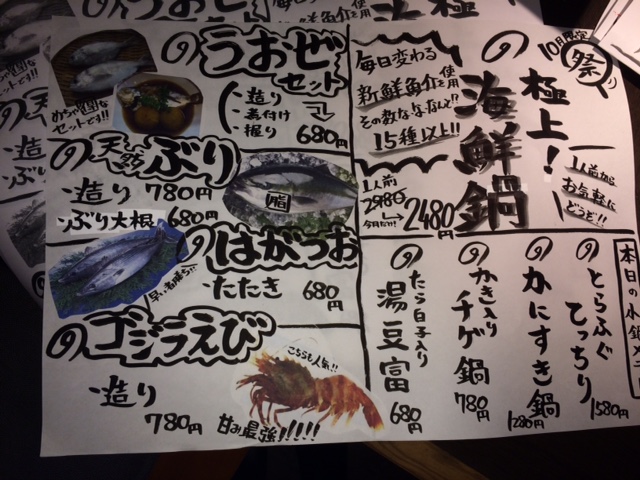 10月限定
祭り
の
極上！
海鮮鍋
毎日変わる
新鮮魚介を使用
その数なななんと!?
15種以上!!
1人前
2980
今月だけ！
2480円
1人前から
お気軽に
どうぞ!!
の
うおぜ
セット
・造り
・煮付け
・握り
680円
めちゃ新鮮な
セットです!!
の
天然
ぶり
・造り 780円
・ぶり大根 680円
脂
の
はがつお
・たたき 680円
早い者勝ち!!
の
ゴジラえび
・造り
780円
こちらも人気!!
甘み最強!!!!!
本日の小鍋
の
とらふぐ
てっちり
1580円
の
かにすき鍋
1280円
の
かき入り
チゲ鍋
780円
の
たら白子入り
湯豆富
680円